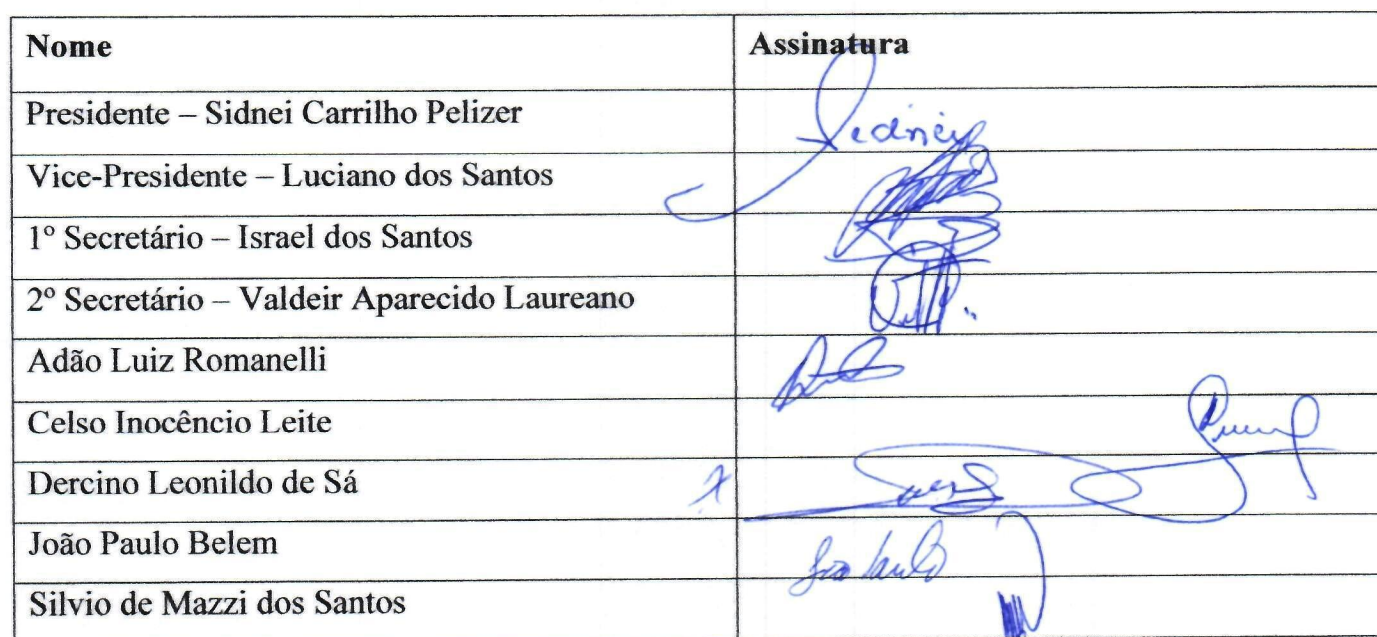 Nome Assinatura
Presidente – Sidnei Carrilho Pelizer Sidney
Vice-Presidente – Luciano dos Santos
1º Secretário – Israel dos Santos
2º Secretário – Valdeir Aparecido Laureano
Adão Luiz Romanelli
Celso Inocêncio Leite
Dercino Leonildo de Sá x
João Paulo Belem João Paulo
Silvio de Mazzi dos Santos